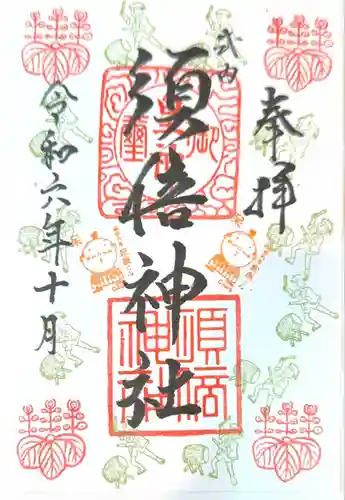 奉拝
式内
須倍神社
令和六年十月
須倍
神社